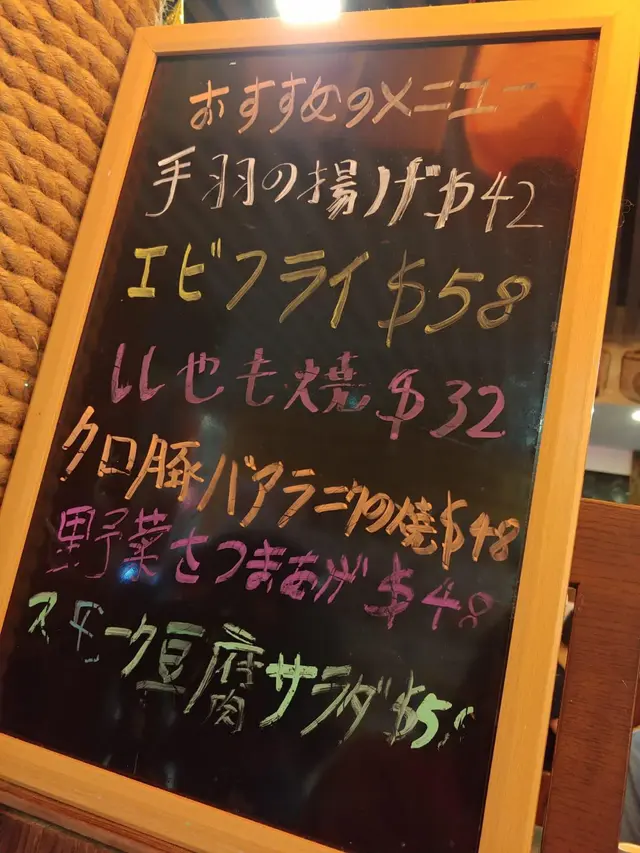 おすすめのメニュー
手羽の揚げ$42
エビフライ $58
ししゃも焼 $32
クロ豚バアラニクの焼$48
野菜さつまあげ $48
スモーク豆腐サラダ$5